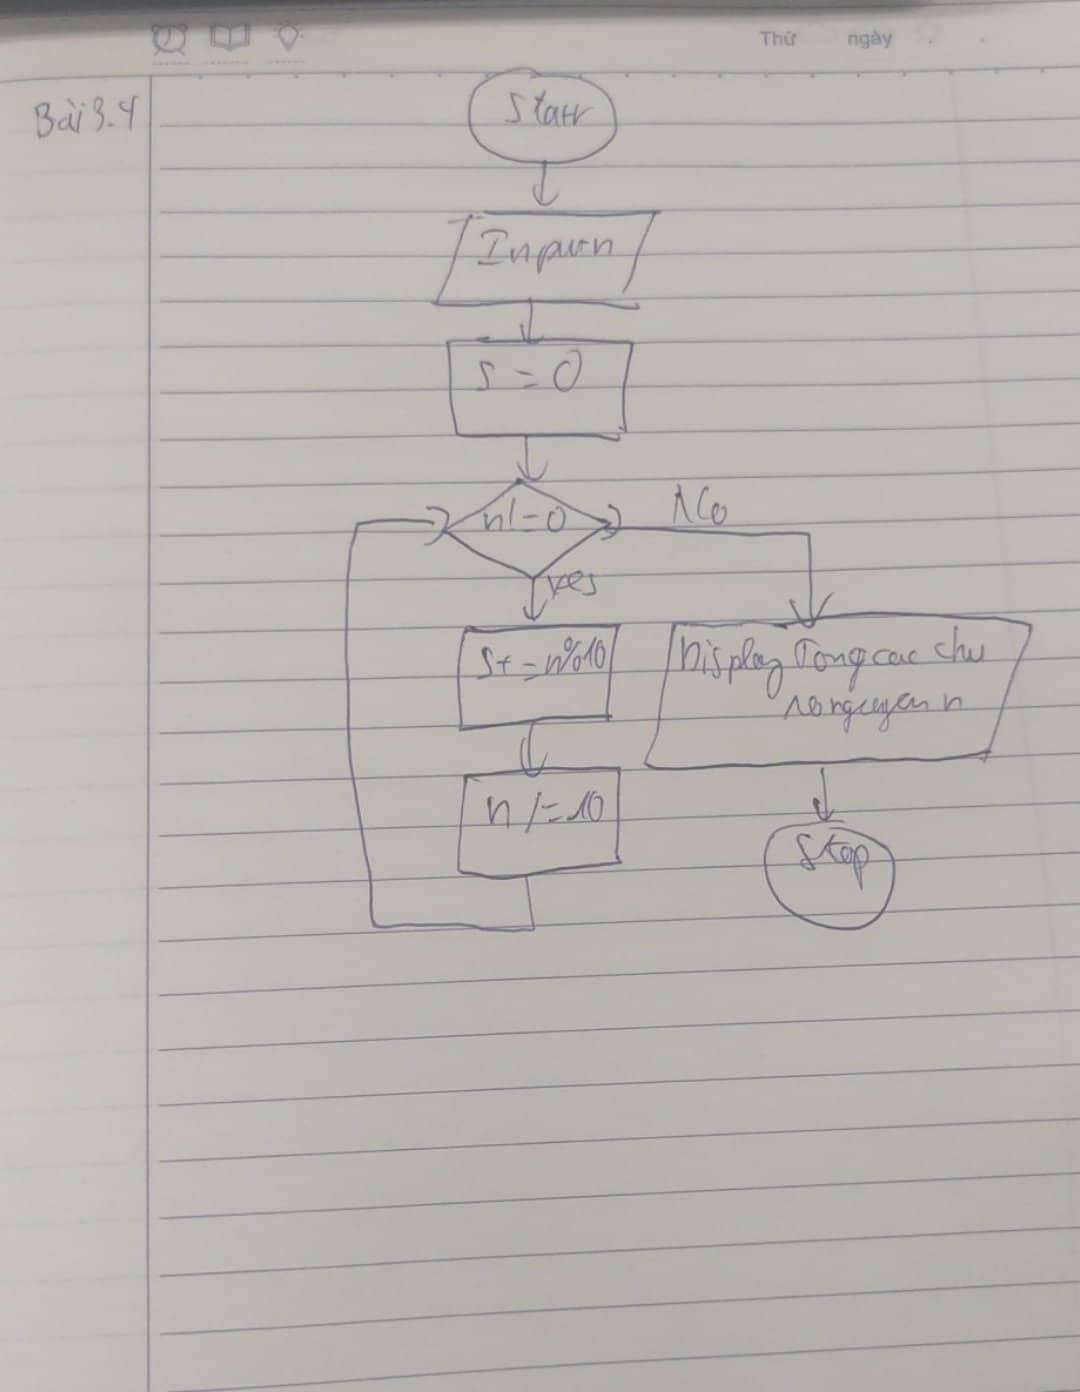 Thứ ngày
Bài 3.4
Start
Input n
S = 0
n!=0
No
yes
S+=n%10
Display Tong cac chu
so nguyen n
n /= 10
Stop